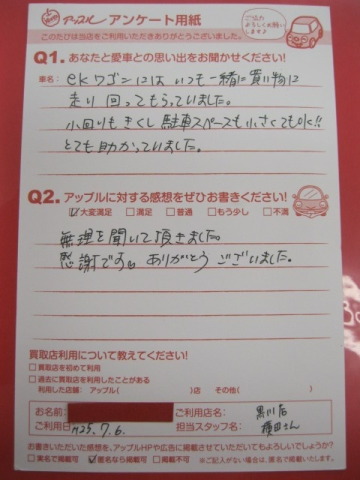 アップル アンケート用紙
ご協力よろしくお願いします♪
このたびは当店をご利用いただきありがとうございました。
Q1. あなたと愛車との思い出をお聞かせください!
車名: ekワゴンには いつも一緒に買い物に
走り回ってもらっていました。
小回りもきくし 駐車スペースも小さくてもOK!!
とても助かっていました。
Q2. アップルに対する感想をぜひお書きください!
☑大変満足 □満足 □普通 □もう少し □不満
無理を聞いて頂きました。
感謝です。ありがとう ございました。
買取店利用について教えてください!
□買取店を初めて利用
□過去に買取店を利用したことがある
利用した店舗: アップル( )店 その他( )
お名前: ご利用店名: 黒川店
ご利用日 H25.7.6. 担当スタッフ名: 横田さん
お書きいただいた感想を、アップルHPや広告に掲載させていただいてもよろしいでしょうか?
□実名で掲載可 ☑匿名なら掲載可 □掲載不可 ※ご記入がない場合は、匿名で掲載いたします。